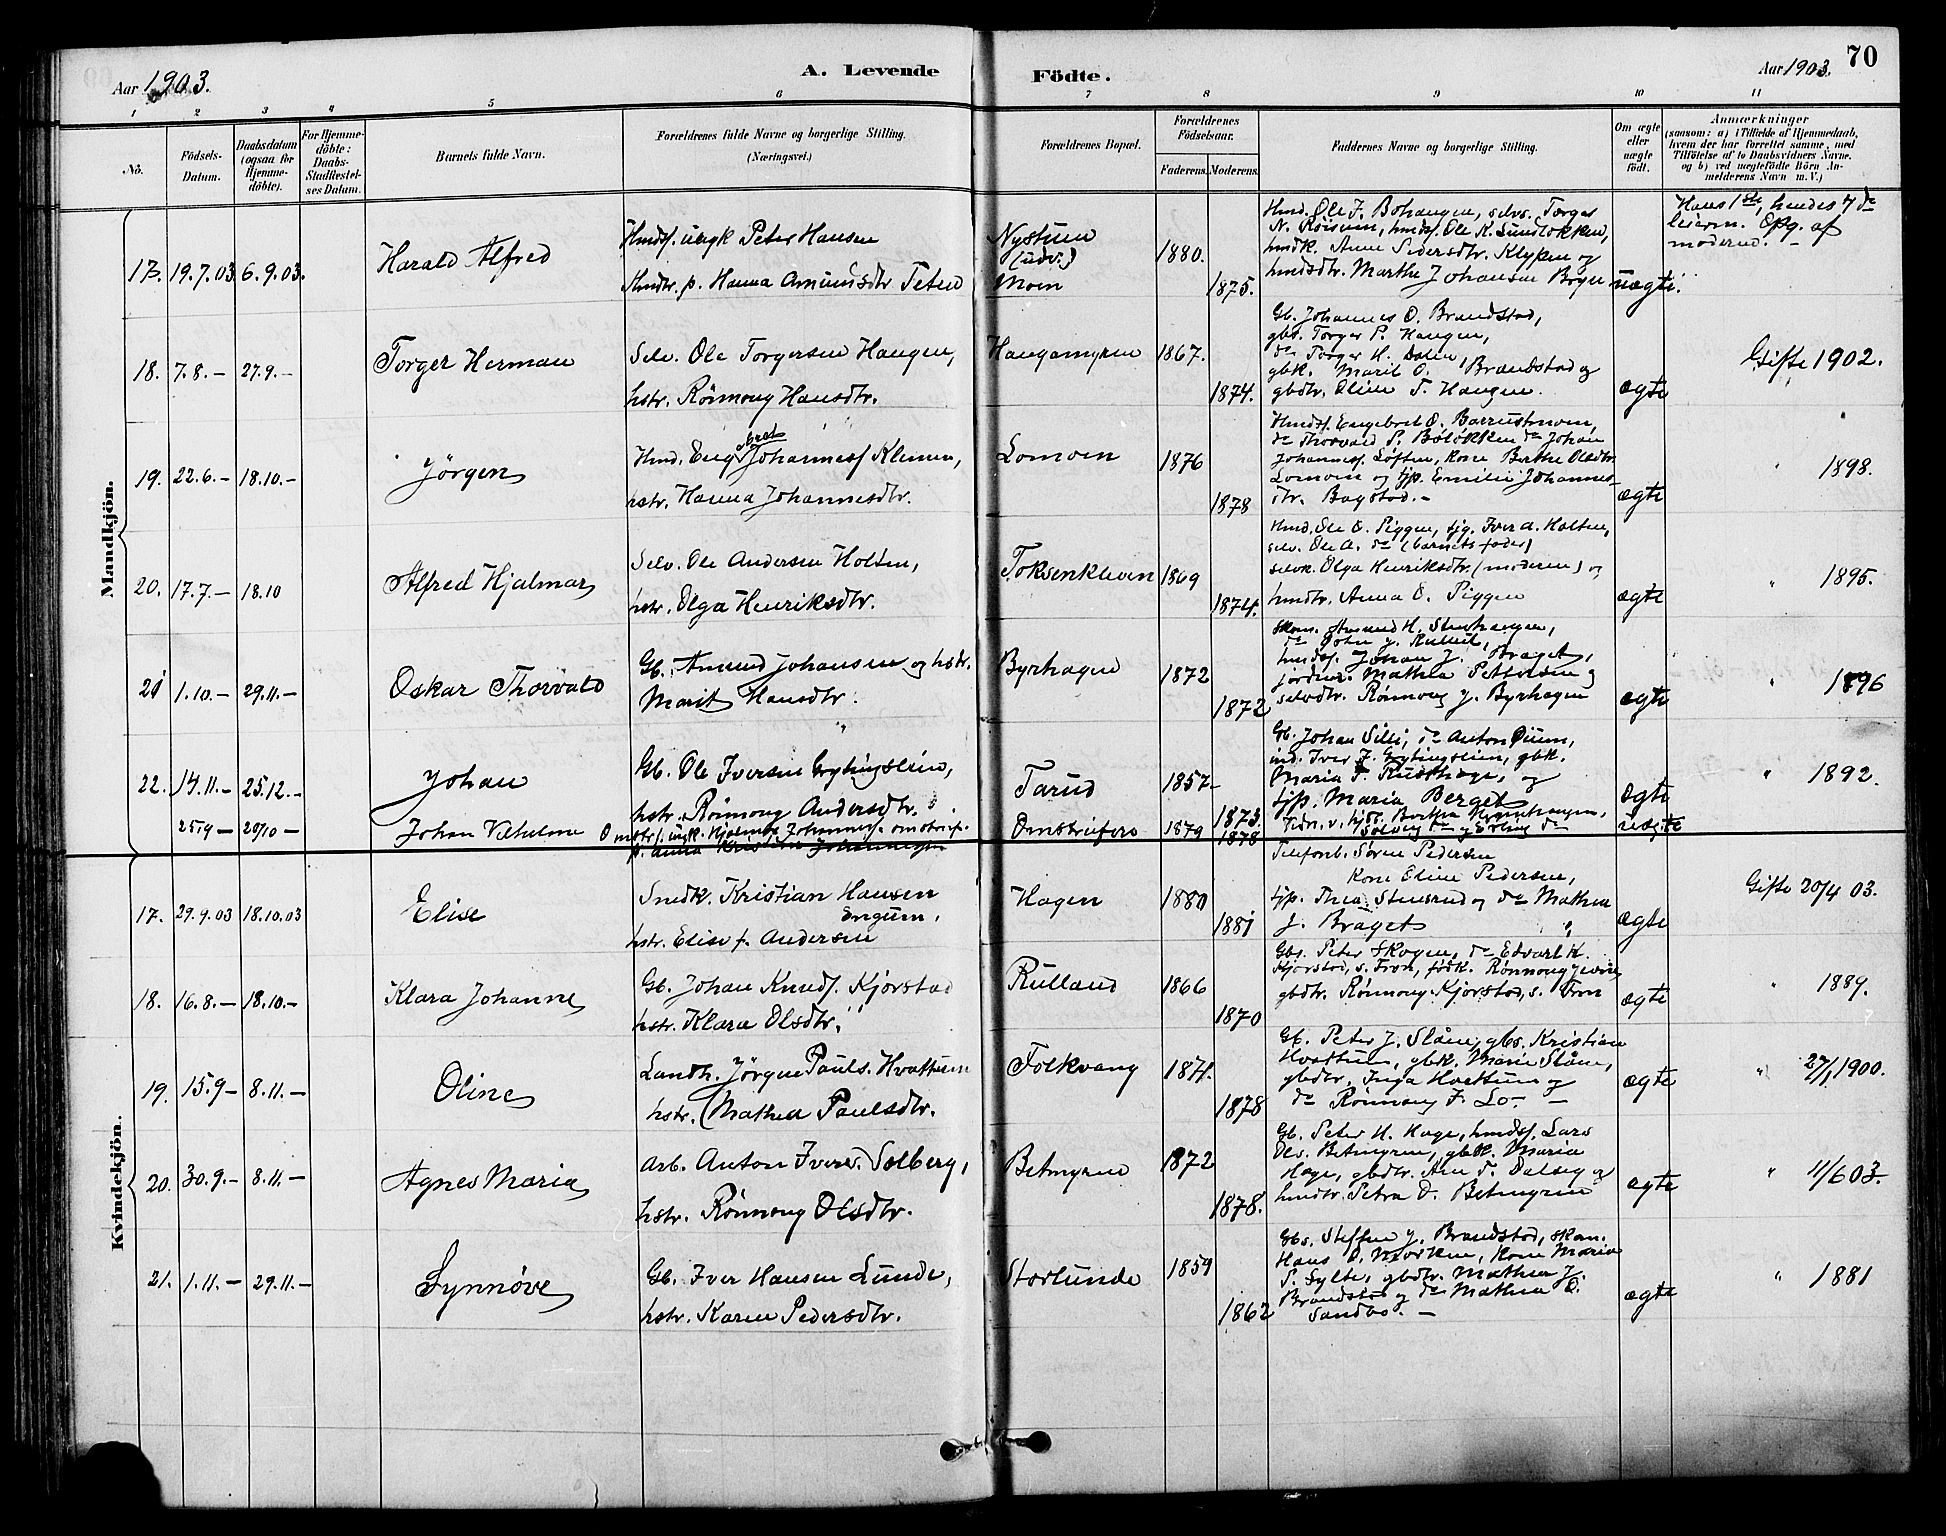 Aar 1903.
A. Levende Födte.
Aar 1903.
70
1 2 3 4 5 6 7 8 9 10 11
No.
Födsels-Datum.
Daabsdatum (ogsaa for Hjemmedöbte).
For Hjemmedöbte: Daabs-Stadfestelses Datum.
Barnets fulde Navn.
Forældrenes fulde Navne og borgerlige Stilling. (Næringsvei.)
Forældrenes Bopæl.
Forældrenes Födselsaar.
Faderens. Moderens.
Faddernes Navne og borgerlige Stilling.
Om ægte eller uægte födt.
Anmærkninger
(saasom: a) i Tilfælde af Hjemmedaab, hvem der har forrettet samme, med Tilföielse af to Daabsvidners Navne, og b) ved uegtefödte Börn Anmelderens Navn m. V.)
Mandkjön.
17. 19.7.03 6.9.03.
Harald Alfred
Hmdsf. ungk Peter Hansen
Hmdtr. p. Hanna Amundsdtr Teten
Nystuen
(udv.)
Moen
1880.
1875.
Hmd. Ole J. Bohaugen, selvs. Torger
N. Röisum, hmdsf. Ole K. Sundlökken,
hmdk. Anne Pedersdtr. Klypen og
hmdsdtr. Marthe Johansen Bryn
uægte.
Hans 1ste, hendes 4 de
leierm. Opg. af
moderen. -
18. 7.8. - 27.9. -
Torger Herman
Selv. Ole Torgersen Haugen,
hstr. Rönnoug Hansdtr.
Haugamyren
1867.
1874.
Gb. Johannes O. Brandstad,
gbs. Torger P. Haugen,
de Torger H. Dalen,
gbk. Marit O. Brandstad og
gbdtr. Oline T. Haugen.
ægte
Gifte 1902.
19. 22.6. - 18.10. -
Jörgen
Hmd. Engebret Johannesf. Klemen,
hstr. Hanna Johannesdtr.
Lomoen
1876
1878
Hmdsf. Engebret O. Barrustmoen,
de Thorvald P. Bölökken de Johan
Johannesf. Löften, Kone Berthe Olsdtr.
Lomoen og tjp. Emilie Johannes-
dtr. Bagstad. -
ægte
" 1898.
20. 17.7. - 18.10
Alfred Hjalmar
Selv. Ole Andersen Holten,
hstr. Olga Henriksdtr.
Toksenkleven
1869
1874.
Hmd. Ole O. Piggen, tjg. Iver A. Holten,
selv. Ole A. de (barnets fader)
selvk. Olga Henriksdtr. (moderen) og
hmdtr. Anna O. Piggen
ægte
" 1895.
21 1.10. - 29.11. -
Oskar Thorvald
Gb. Amund Johansen og hstr.
Marit Hansdtr.
Byrhagen
1872
1872
Skom. Amund H. Stenhaugen,
hmdsf. Johan J. Braget,
jordmr. Mathea Pettersen og
selvdtr. Rönnoug J. Byrhagen
ægte
" 1896
22. 14.11. - 25.12. -
Johan
Gb. Ole Iversen Grytingslien,
hstr. Rönnoug Andersdtr.
Tarud
1857.
1873.
Gb. Johan Silli, de Anton Öium,
ind. Iver J. Grytingslien, gbk.
Maria T. Rusthage, og
tjp. Maria Berget
ægte
" 1892.
25/9 - 20/10 -
Johan Vilhelm
Omstrf. ungk. Hjalmar Johannesf. omstreif.
p. Anna Kristine Johannesen
Omstreifere
1879
1878
Solveig de og Erling de
uægte
Kvindekjön.
17. 29.9.03 18.10.03
Elise
Smdk. Kristian Hansen
Engum,
hstr. Elise f. Andersen
Hagen
1880
1881
Telefonb. Sören Pedersen
Kone Eline Pedersen,
tjp. Thea Stensrud og de Mathea
J. Braget
ægte
Gifte 20/4 03.
18. 16.8. - 18.10. -
Klara Johanne
Gb. Johan Knudsf. Kjörstad
hstr. Klara Olsdtr.
Rulland
1866
1870
Gbs. Peter Skogen, de Edvart K.
Kjörstad, s. Fron, födk. Rönnoug
gbdtr. Rönnoug Kjörstad, s. Fron
ægte
" 1889.
19. 15.9 - 8.11. -
Oline
Landh. Jörgen Pauls. Hvattum
hstr. Mathea Paulsdtr.
Folkvang
1874.
1878
Gb. Peter J. Slåen, gbs. Kristian
Hvattum, gbk. Marie Slåen,
gbdtr. Inga Hvattum og
de Rönnoug J. Lo. -
ægte
" 27/1 1900.
20. 30.9. - 8.11. -
Agnes Maria
Arb. Anton Ivers. Solberg,
hstr. Rönnoug Olsdtr.
Betmyren
1872
1878.
Gb. Peter H. Hage, hmdsf. Lars
Ols. Betmyren, gbk. Maria
Hage, gbdtr. Ane T. Dalseg og
hmdtr. Petra O. Betmyren
ægte
" 11/6 03.
21. 1.11. - 29.11. -
Synnöve
Gb. Iver Hansen Lunde,
hstr. Karen Pedersdtr.
Storlunde
1859
1862
Gbs. Steffen J. Brandstad, skom.
Hans O. Moerken, Kone Maria
P. Sylte, gbdtr. Mathea J.
Brandstad og de Mathea O.
Sandbo. -
ægte
" 1881